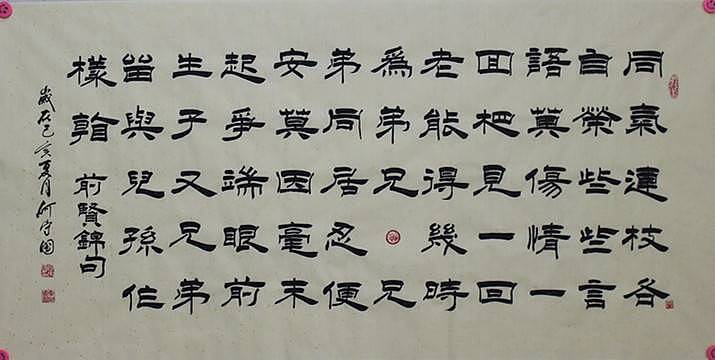 同氣連枝各
自榮些些言
語莫傷情一
回相見一回
老能得幾時
爲弟兄兄
弟同居忍便
安莫因毫末
起爭端眼前
生子又兄弟
留與兒孫作
樣看 前賢錦句
歲在己亥夏月何守國